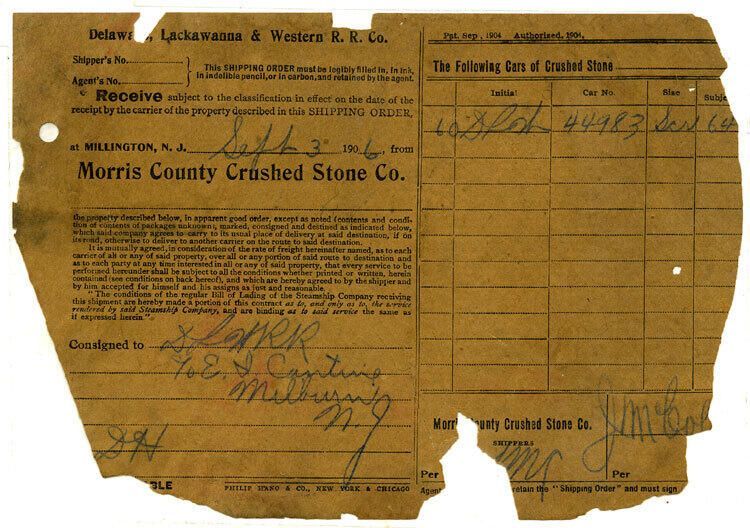 Delawa , Lackawanna & Western R. R. Co.
Shipper's No.
Agent's No.
This SHIPPING ORDER must be legibly filled in, in ink,
in indelible pencil, or in carbon, and retained by the agent.
Receive subject to the classification in effect on the date of the
receipt by the carrier of the property described in this SHIPPING ORDER,
at MILLINGTON, N. J. Sept 3 1906, from
Morris County Crushed Stone Co.
the property described below, in apparent good order, except as noted (contents and condi-
tion of contents of packages unknown), marked, consigned and destined as indicated below,
which said company agrees to carry to its usual place of delivery at said destination, if on
its road, otherwise to deliver to another carrier on the route to said destination.
It is mutually agreed, in consideration of the rate of freight hereinafter named, as to each
carrier of all or any of said property, over all or any portion of said route to destination and
as to each party at any time interested in all or any of said property, that every service to be
performed hereunder shall be subject to all the conditions whether printed or written, herein
contained (see conditions on back hereof), and which are hereby agreed to by the shipper and
by him accepted for himself and his assigns as just and reasonable.
"The conditions of the regular Bill of Lading of the Steamship Company receiving
this shipment are hereby made a portion of this contract as to, and only as to, the service
rendered by said Steamship Company, and are binding as to said service the same as
if expressed herein."
Consigned to
Milburn
N. J
DH
BLE
PHILIP HANO & CO., NEW YORK & CHICAGO
Pat. Sep , 1904 Authorized, 1904,
The Following Cars of Crushed Stone
Initial Car No. Size Subje
60 44983 Scr 64
Morri County Crushed Stone Co.
SHIPPERS
Per Per
Agent retain the "Shipping Order" and must sign